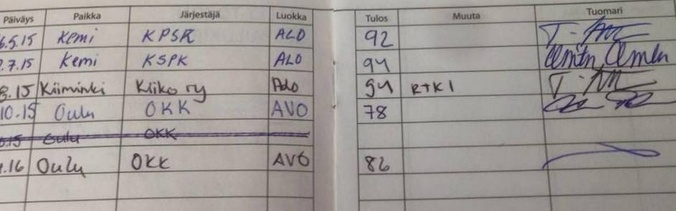 Päiväys Paikka Järjestäjä Luokka Tulos Muuta Tuomari
6.5.15 Kemi KPSR ALO 92
.7.15 Kemi KSPK ALO 94
.15 Kiiminki Kiiko ry Alo 94 RTK1
10.15 Oulu OKK AVO 78
.15 Oulu OKK
.16 Oulu OKK AVO 86